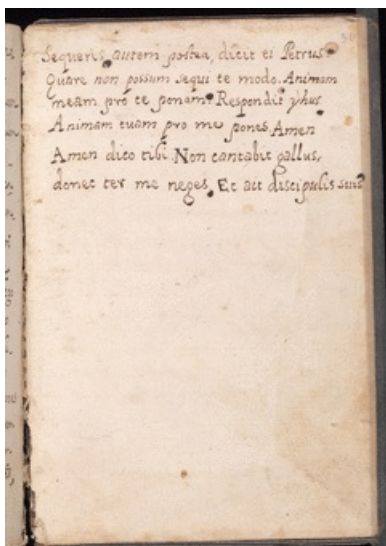 Sequeris autem postea, dicit ei Petrus
Quare non possum sequi te modo. Animam
meam pro te ponam. Respondit yhus
Animam tuam pro me pones. Amen
Amen dico tibi. Non cantabit gallus,
donec ter me neges. Et ait discipulis suis